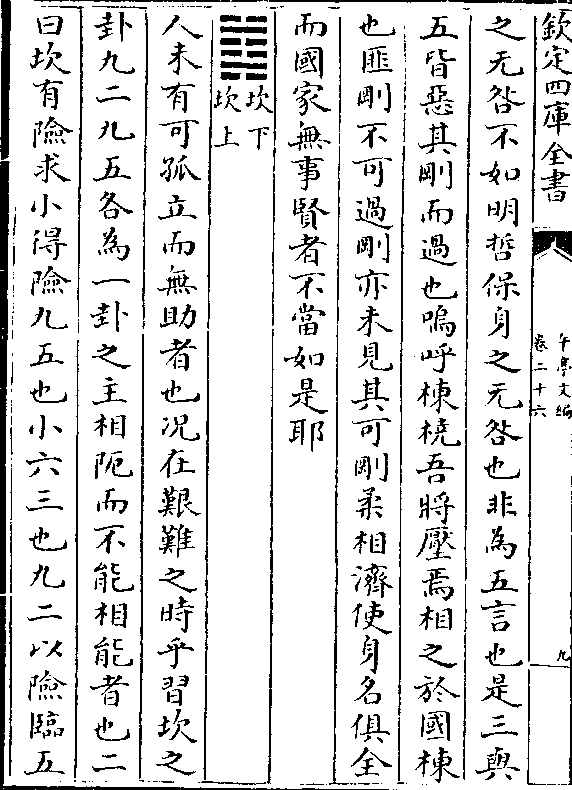 欽定四庫全書
午亭文編
卷二十六
九
之无咎不如明哲保身之无咎也非為五言也是三與
五皆惡其剛而過也嗚呼棟橈吾將壓焉相之於國棟
也匪剛不可過剛亦未見其可剛柔相濟使身名俱全
而國家無事賢者不當如是耶
䷜坎下
坎上
人未有可孤立而無助者也况在艱難之時乎習坎之
卦九二九五各為一卦之主相阨而不能相能者也二
曰坎有險求小得險九五也小六三也九二以險臨五